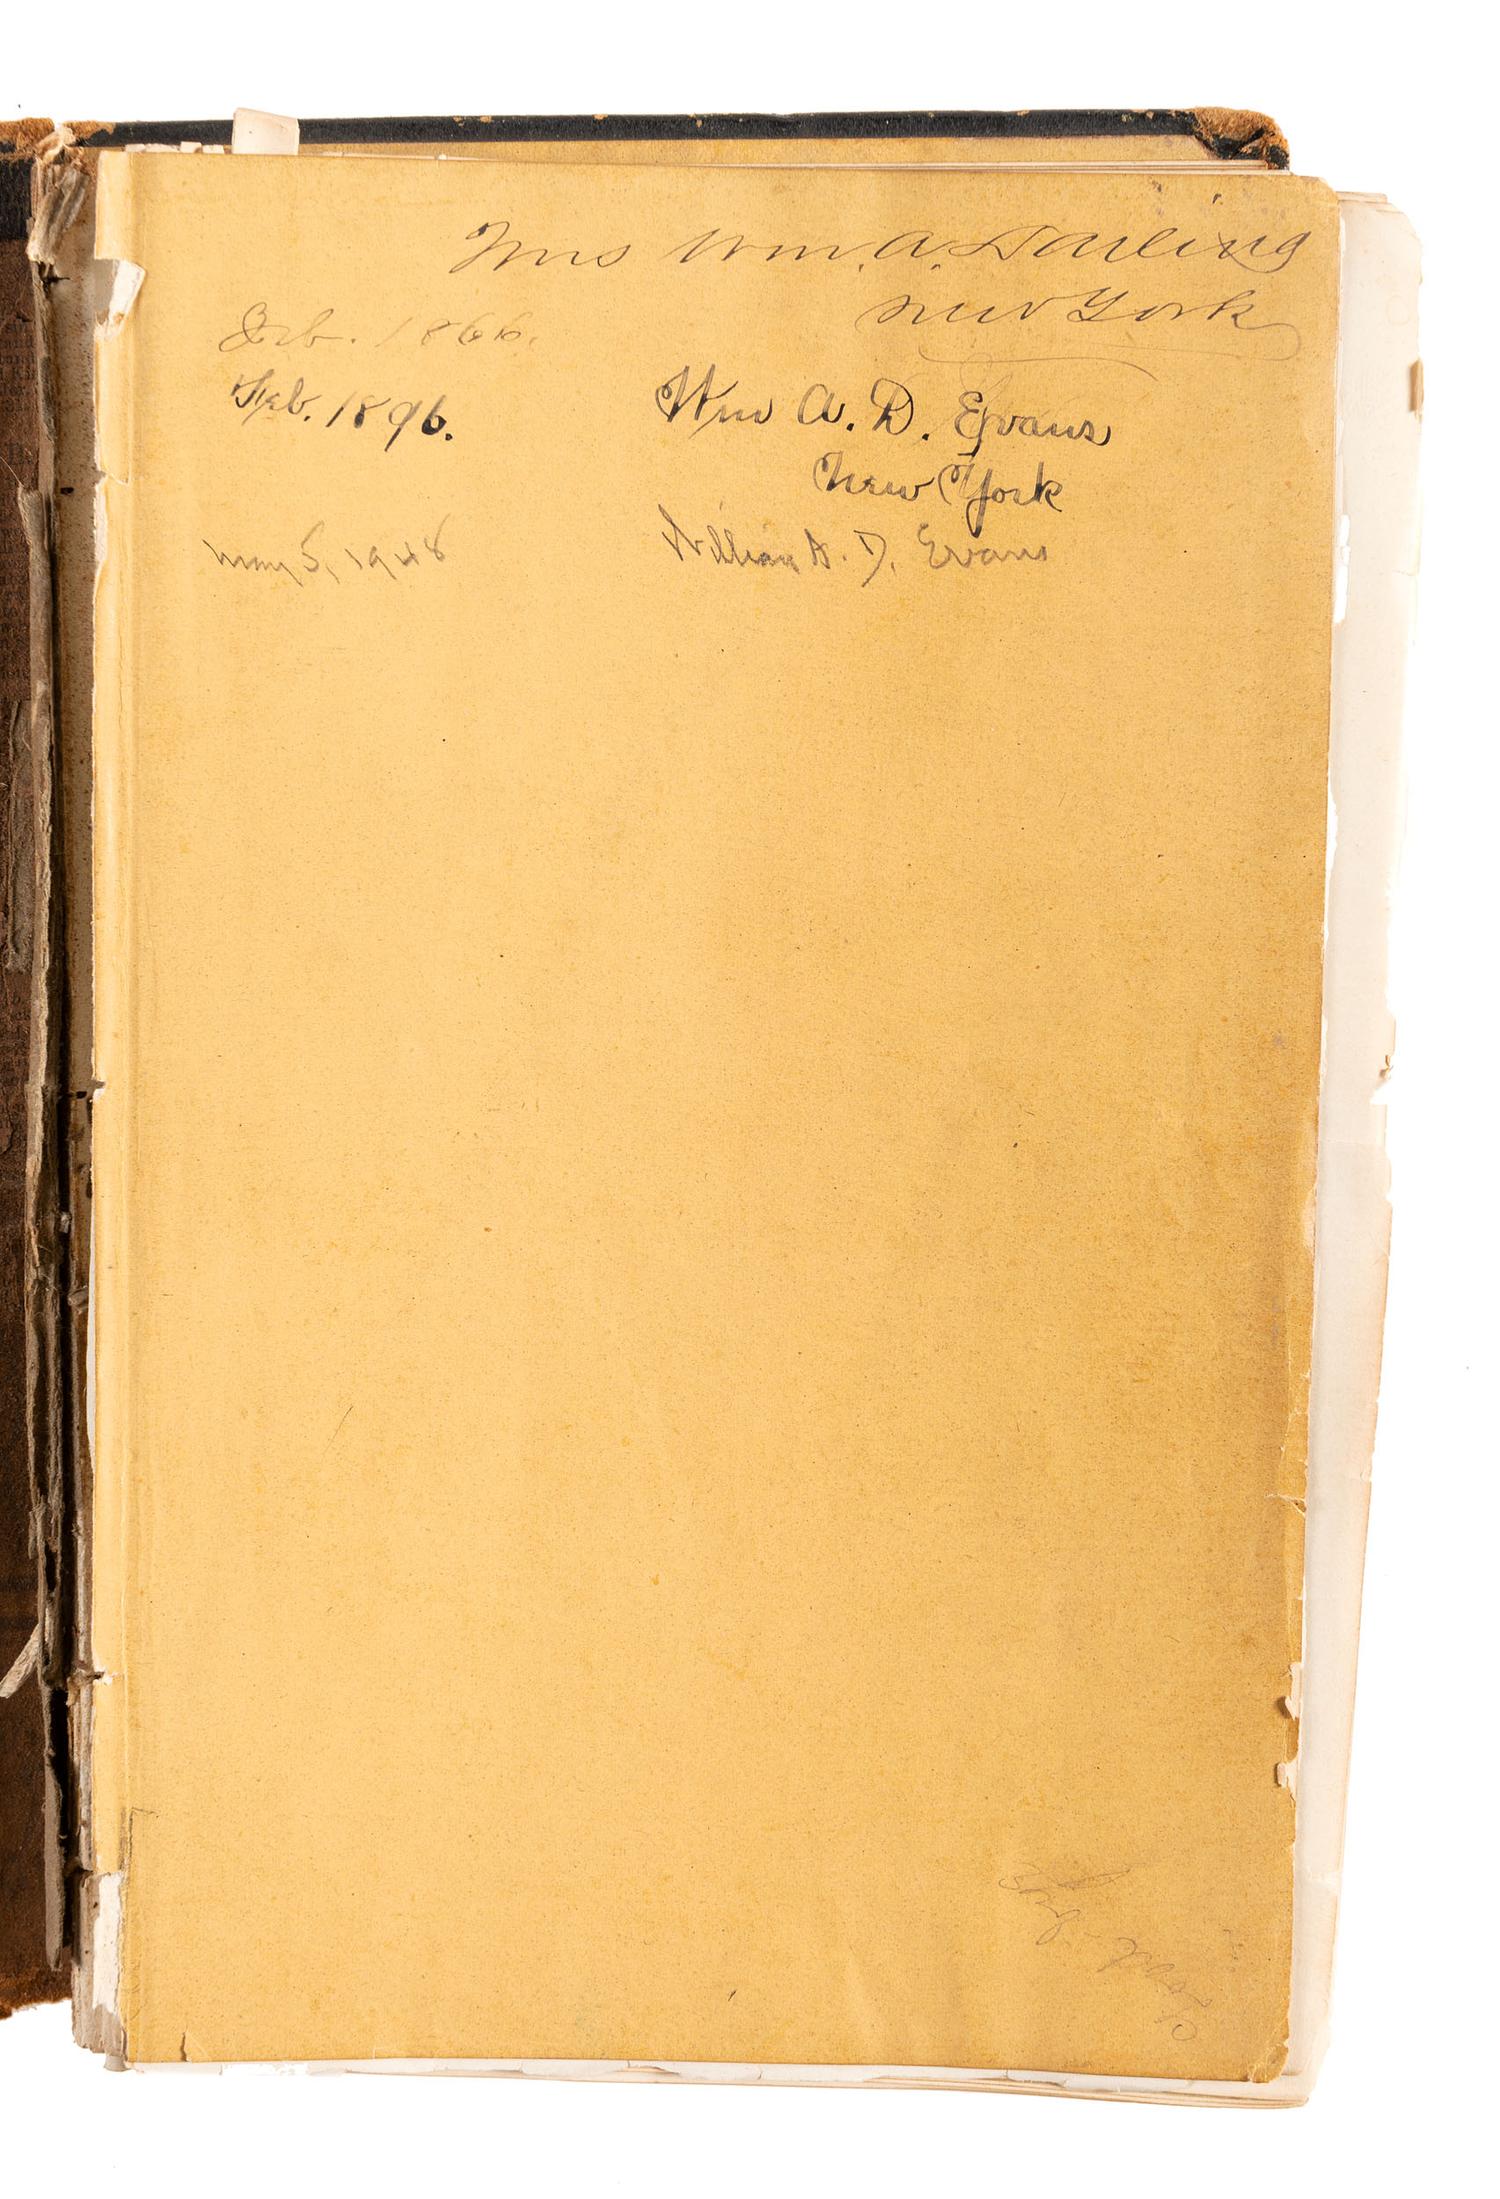 Mrs Wm. A. Darling
New York
Feb. 1866.
Feb. 1896.
Wm A. D. Evans
New York
May 5, 1948
William A. D. Evans